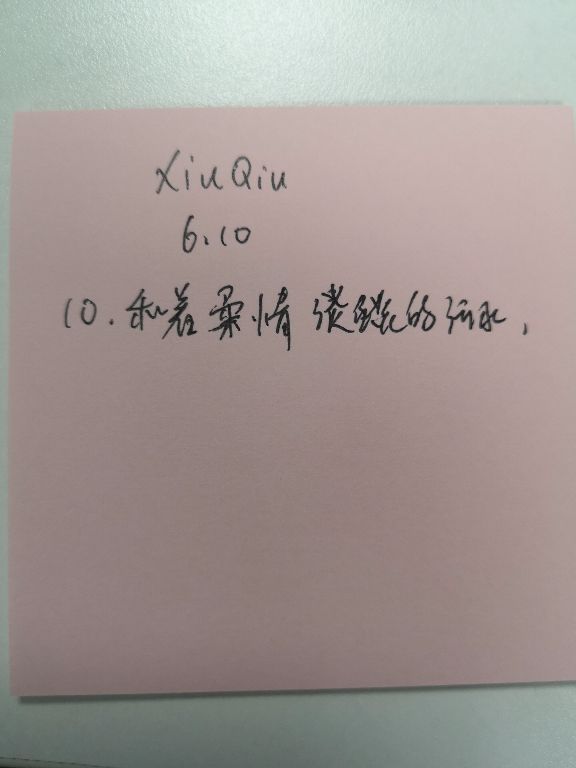 XiuQiu
6.10
10.和着柔情缱绻的流水,